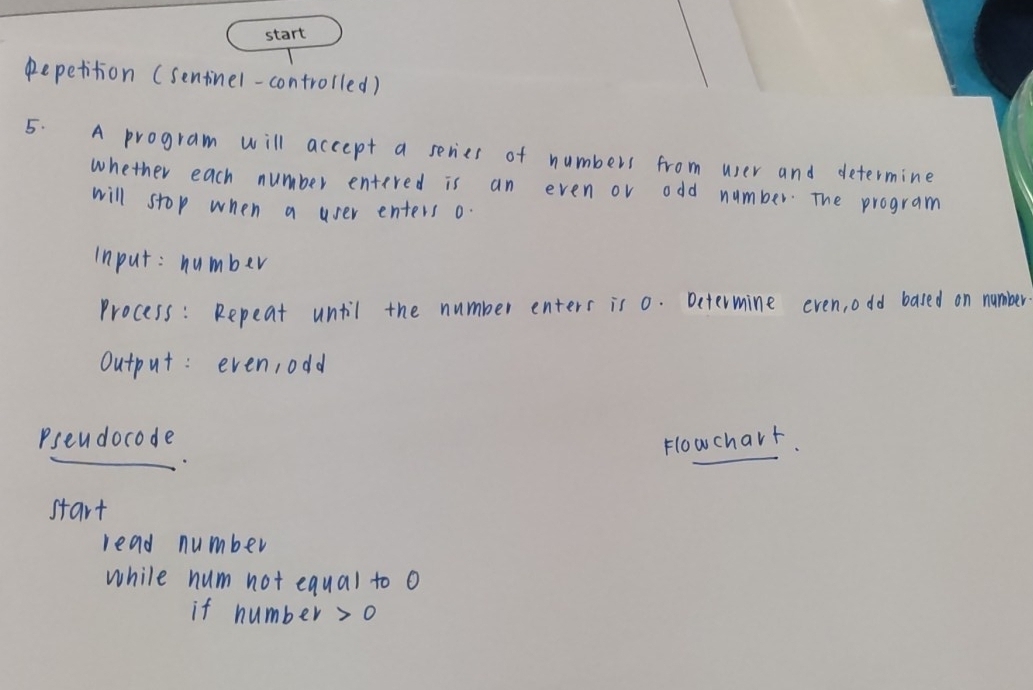 start
Repetition (sentinel-controlled)
5. A program will accept a series of numbers from user and determine
whether each number entered is an even or odd number. The program
will stop when a user enters 0.
Input: number
Process: Repeat until the number enters is 0. Determine even, odd based on number.
Output: even, odd
Pseudocode.
Flowchart.
start
read number
while num not equal to 0
if number > 0